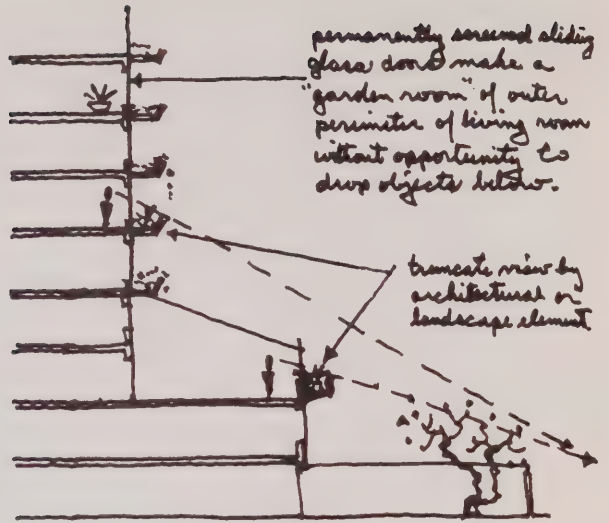 permanently screened sliding
glass doors make a
"garden room" of outer
perimeter of living room
without opportunity to
drop objects below.
truncate view by
architectural or
landscape element